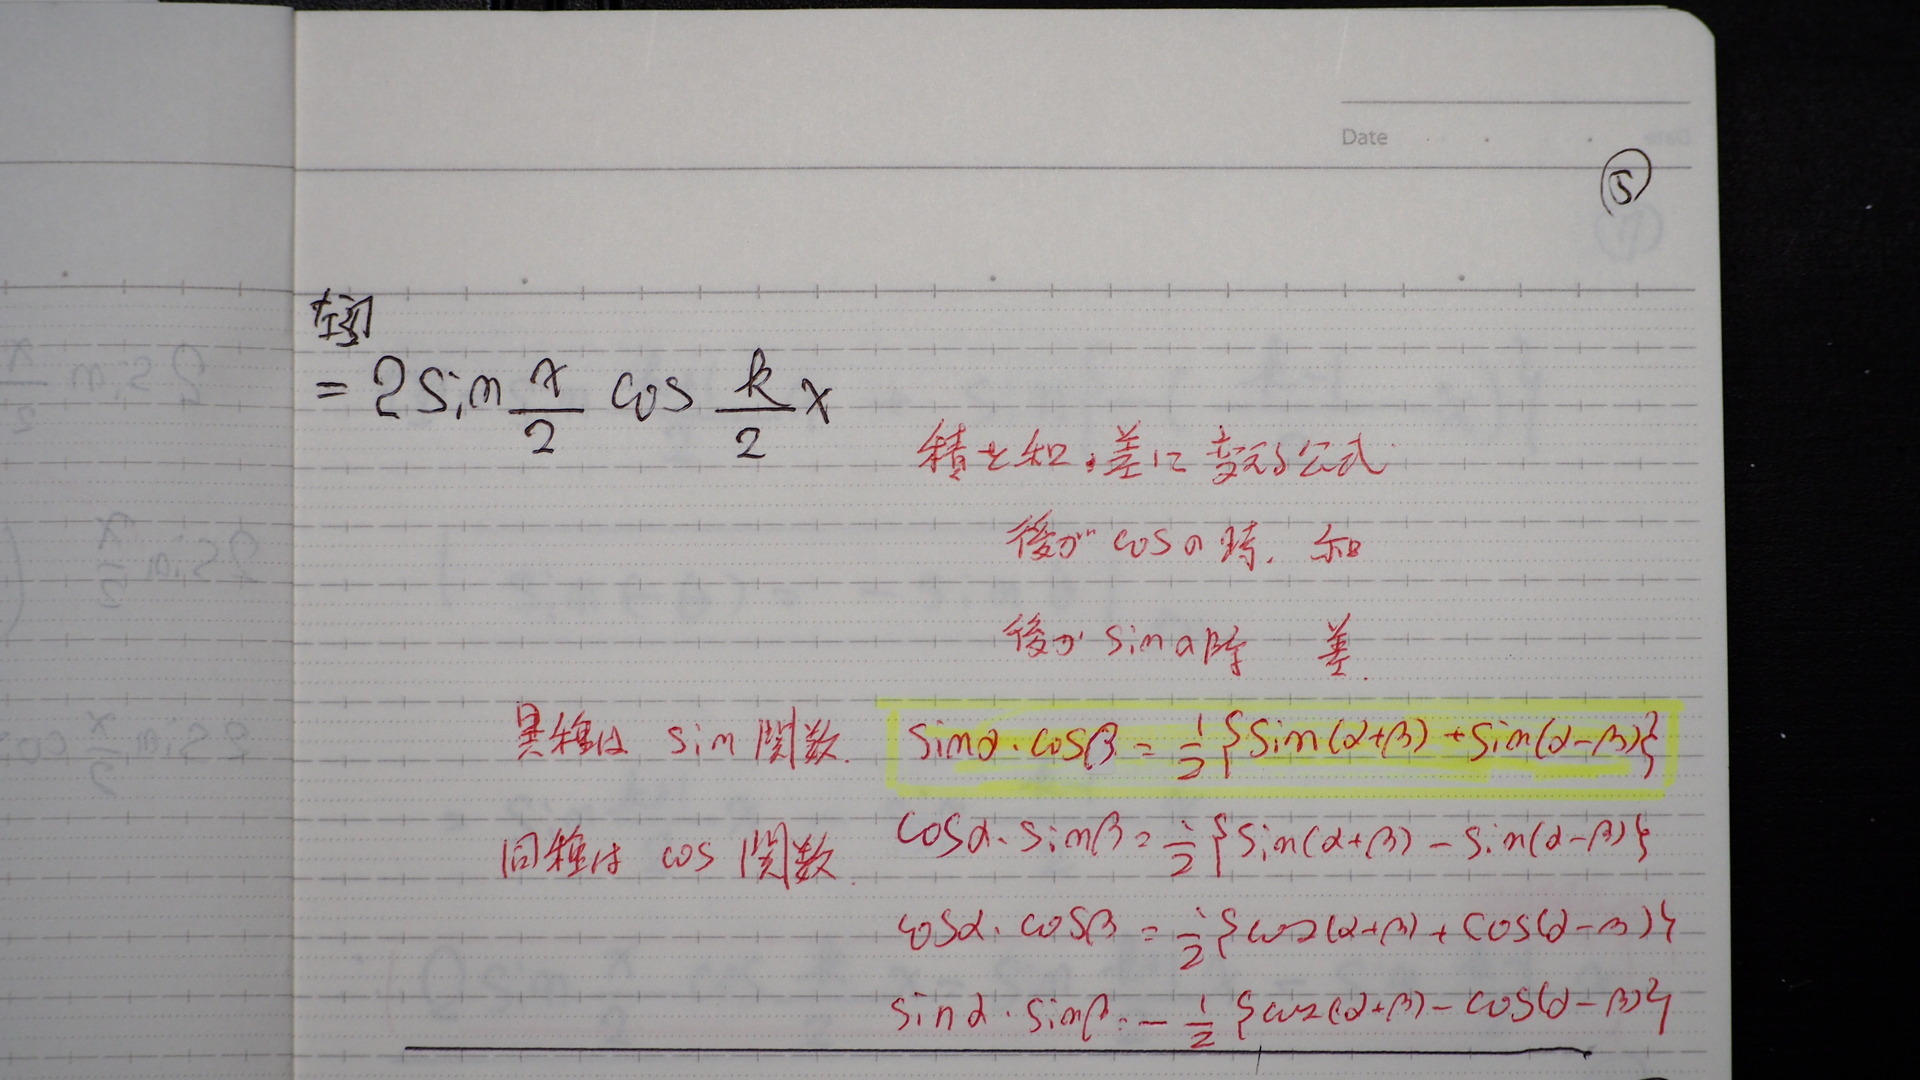 Date
⑤
左辺
= 2 sin x/2 cos k/2 x
積を和・差に変える公式
後が cosの時、和
後が sinの時 差
異種は sin 関数. sinα・cosβ = 1/2 {sin(α+β) + sin(α-β)}
同種は cos 関数. cosα・sinβ = 1/2 {sin(α+β) - sin(α-β)}
cosα・cosβ = 1/2 {cos(α+β) + cos(α-β)}
sinα・sinβ = - 1/2 {cos(α+β) - cos(α-β)}